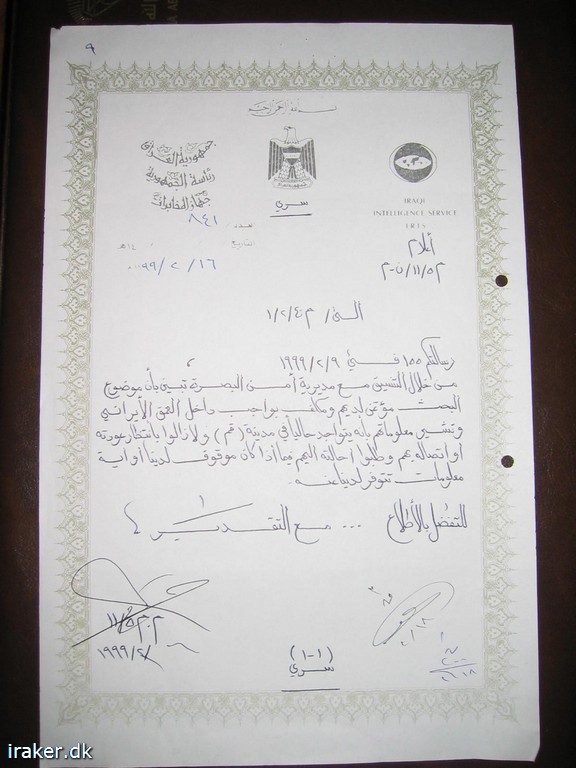 ٩
بسم الله الرحمن الرحيم
جمهورية العراق
رئاسة الجمهورية
جهاز المخابرات
سري
IRAQI
INTELLIGENCE SERVICE
I.R.I.S
العدد: ٨٤١
التاريخ
١٤هـ
٩٩/٢/١٦
أعلام
الى/ م١/٢/٤
رسالتكم ١٥٥ في ١٩٩٩/٢/٩
من خلال التنسيق مع مديرية أمن البصرة تبين بأن موضوع
البحث مؤتمن لديهم ومكلف بواجب داخل العمق الأيراني
وتشير معلوماتهم بأنه يتواجد حالياً في مدينة (قم) ولازالوا بأنتظار عودته
أو اتصاله بهم وطلبوا أحالته اليهم فيما أذا كان موقوف لدينا أو اية
معلومات تتوفر لدينا عنه.
للتفضل بالأطلاع ... مع التقدير
١٩٩٩/٢/
(١-١)
سري
iraker.dk